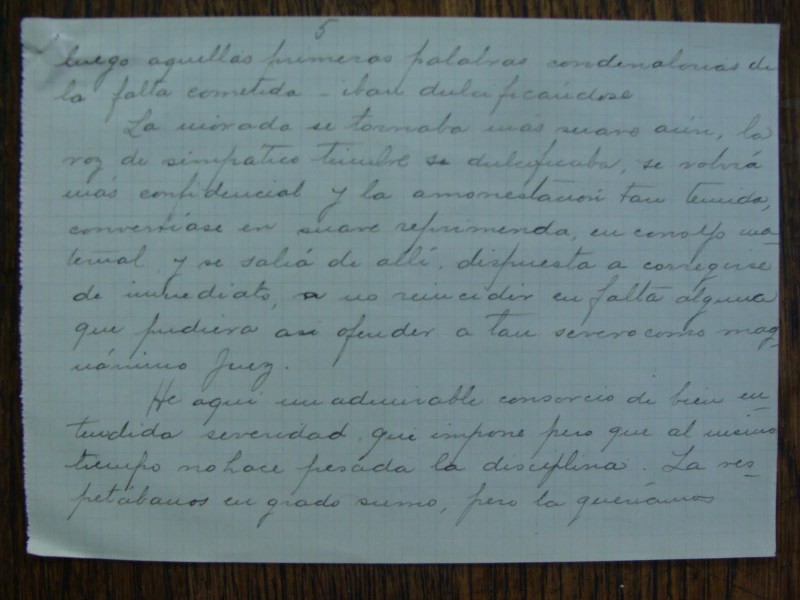 5
luego aquellas primeras palabras condenatorias de
la falta cometida - iban dulcificándose
La mirada se tornaba más suave aún, la
voz de simpático timbre se dulcificaba, se volvía
más confidencial y la amonestación tan temida,
convertíase en suave reprimenda, en consejo ma-
ternal y se salía de allí, dispuesta a corregirse
de inmediato, a no reincidir en falta alguna
que pudiera así ofender a tan severo como mag-
nánimo Juez.
He aquí un admirable consorcio de bien en-
tendida severidad que impone pero que al mismo
tiempo no hace pesada la disciplina. La res-
petábamos en grado sumo, pero la queríamos